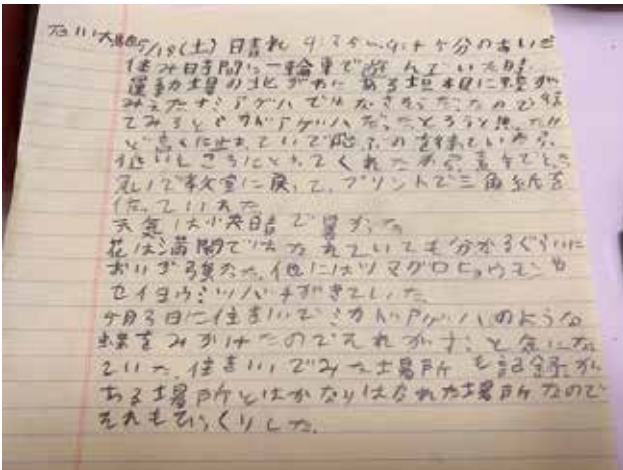 5/18(土) 日晴れ 9:35~9:45分のあいだ
休み時間に一輪車で遊んでいた時、
運動場の北がわにある垣根に蝶が
みえたナミアゲハでは
てみるとミカドアゲハだったとろうと思ったけ
ど高くに止まっていて
低いところにとまってくれたから
急いで教室に戻って、プリントで三角紙を
作っていれた
天気は 晴で暑かった
花は満開ではなれていても分かるぐらいに
おいが強た。他にはツマグロヒョウモンや
セイヨウミツバチがきていた。
4月3日に住まいでミカドアゲハのような
蝶をみかけたのでそれがずっと気にな
ていた、住まいでみた場所も記録が
ある場所とはかなりはなれた場所なので
それもびっくりした。